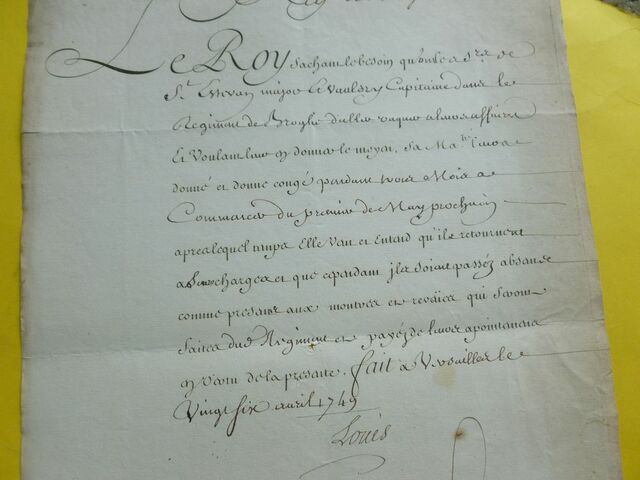 Le Roy sachant le besoin qu'ont les Srs. de
St. Estevan major et Vauldry Capitaine dans le
Regiment de Broglie d'aller vaquer a leurs affaires
Et Voulant leur en donner le moyen, sa Maté. leur a
donné et donne congé pendant trois Mois a
Commancer du premier de May prochain
apres lequel temps Elle Veut et Entend qu'ils retournent
a leurs charges et que cependant ils soient passéz absens
comme presens aux montres et reveües qui seront
faites dud. Regiment et payéz de leurs apointemens
en Vertu de la presente. fait a Versailles le
Vingt six avril 1749
Louis